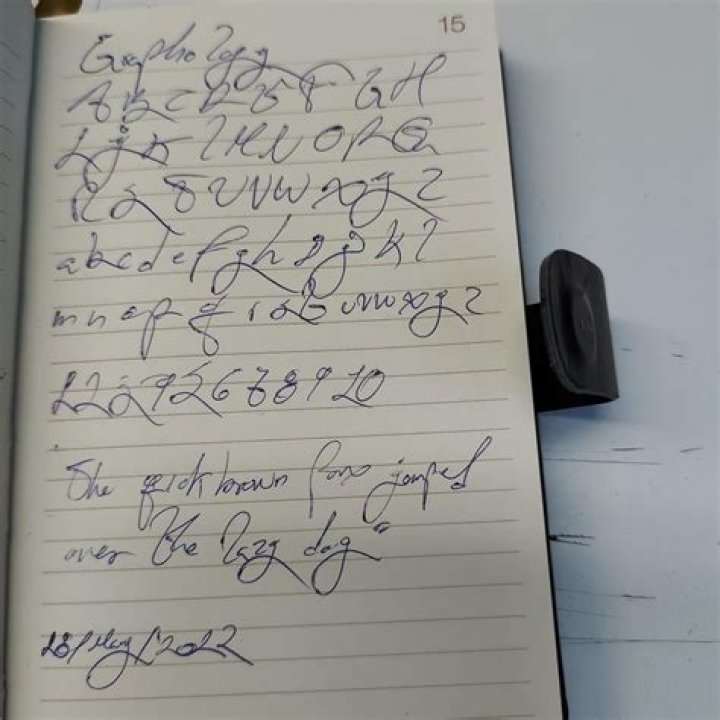 15
Graphology
A B C D E F G H
I J K L M N O P Q
R S T U V W X Y Z
a b c d e f g h i j k l
m n o p q r s t u v w x y z
1 2 3 4 5 6 7 8 9 10
The quick brown fox jumped
over the lazy dog"
18/May/2022